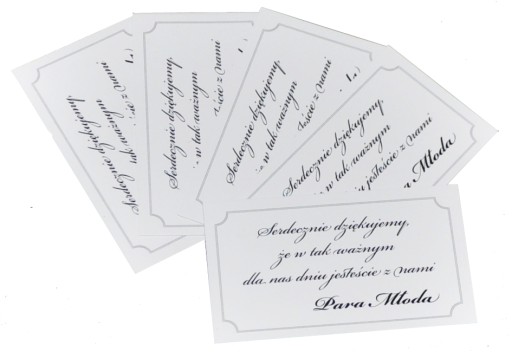 Serdecznie dziękujemy,
że w tak ważnym
dla nas dniu jesteście z nami
Para Młoda
Serdecznie dziękujemy,
w tak ważnym
dniu jesteście z nami
Para Młoda
Serdecznie dziękujemy,
w tak ważnym
z nami
Serdecznie dziękujemy,
w tak ważnym
z nami
Serdecznie dziękujemy,
tak ważnym
z nami